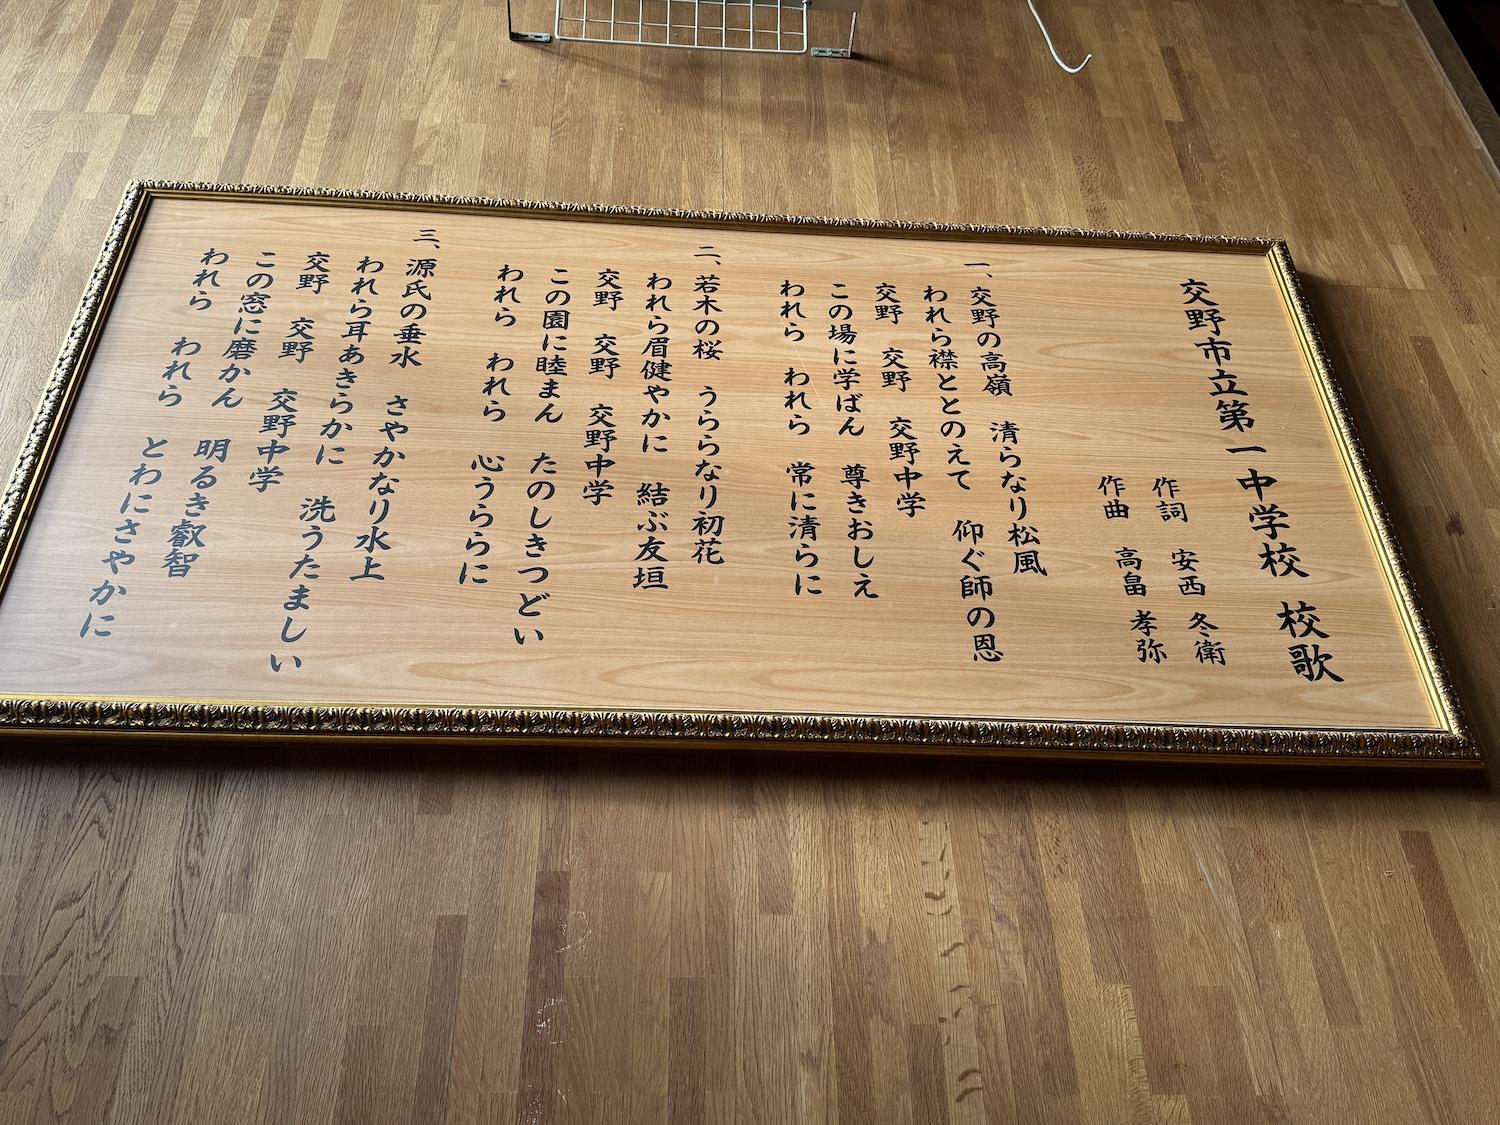 交野市立第一中学校　校歌
作詞　安西　冬衛
作曲　高畠　孝弥
一、交野の高嶺　清らなり松風
われら襟ととのえて　仰ぐ師の恩
交野　交野　交野中学
この場に学ばん　尊きおしえ
われら　われら　常に清らに
二、若木の桜　うららなり初花
われら眉健やかに　結ぶ友垣
交野　交野　交野中学
この園に睦まん　たのしきつどい
われら　われら　心うららに
三、源氏の垂水　さやかなり水上
われら耳あきらかに　洗うたましい
交野　交野　交野中学
この窓に磨かん　明るき叡智
われら　われら　とわにさやかに